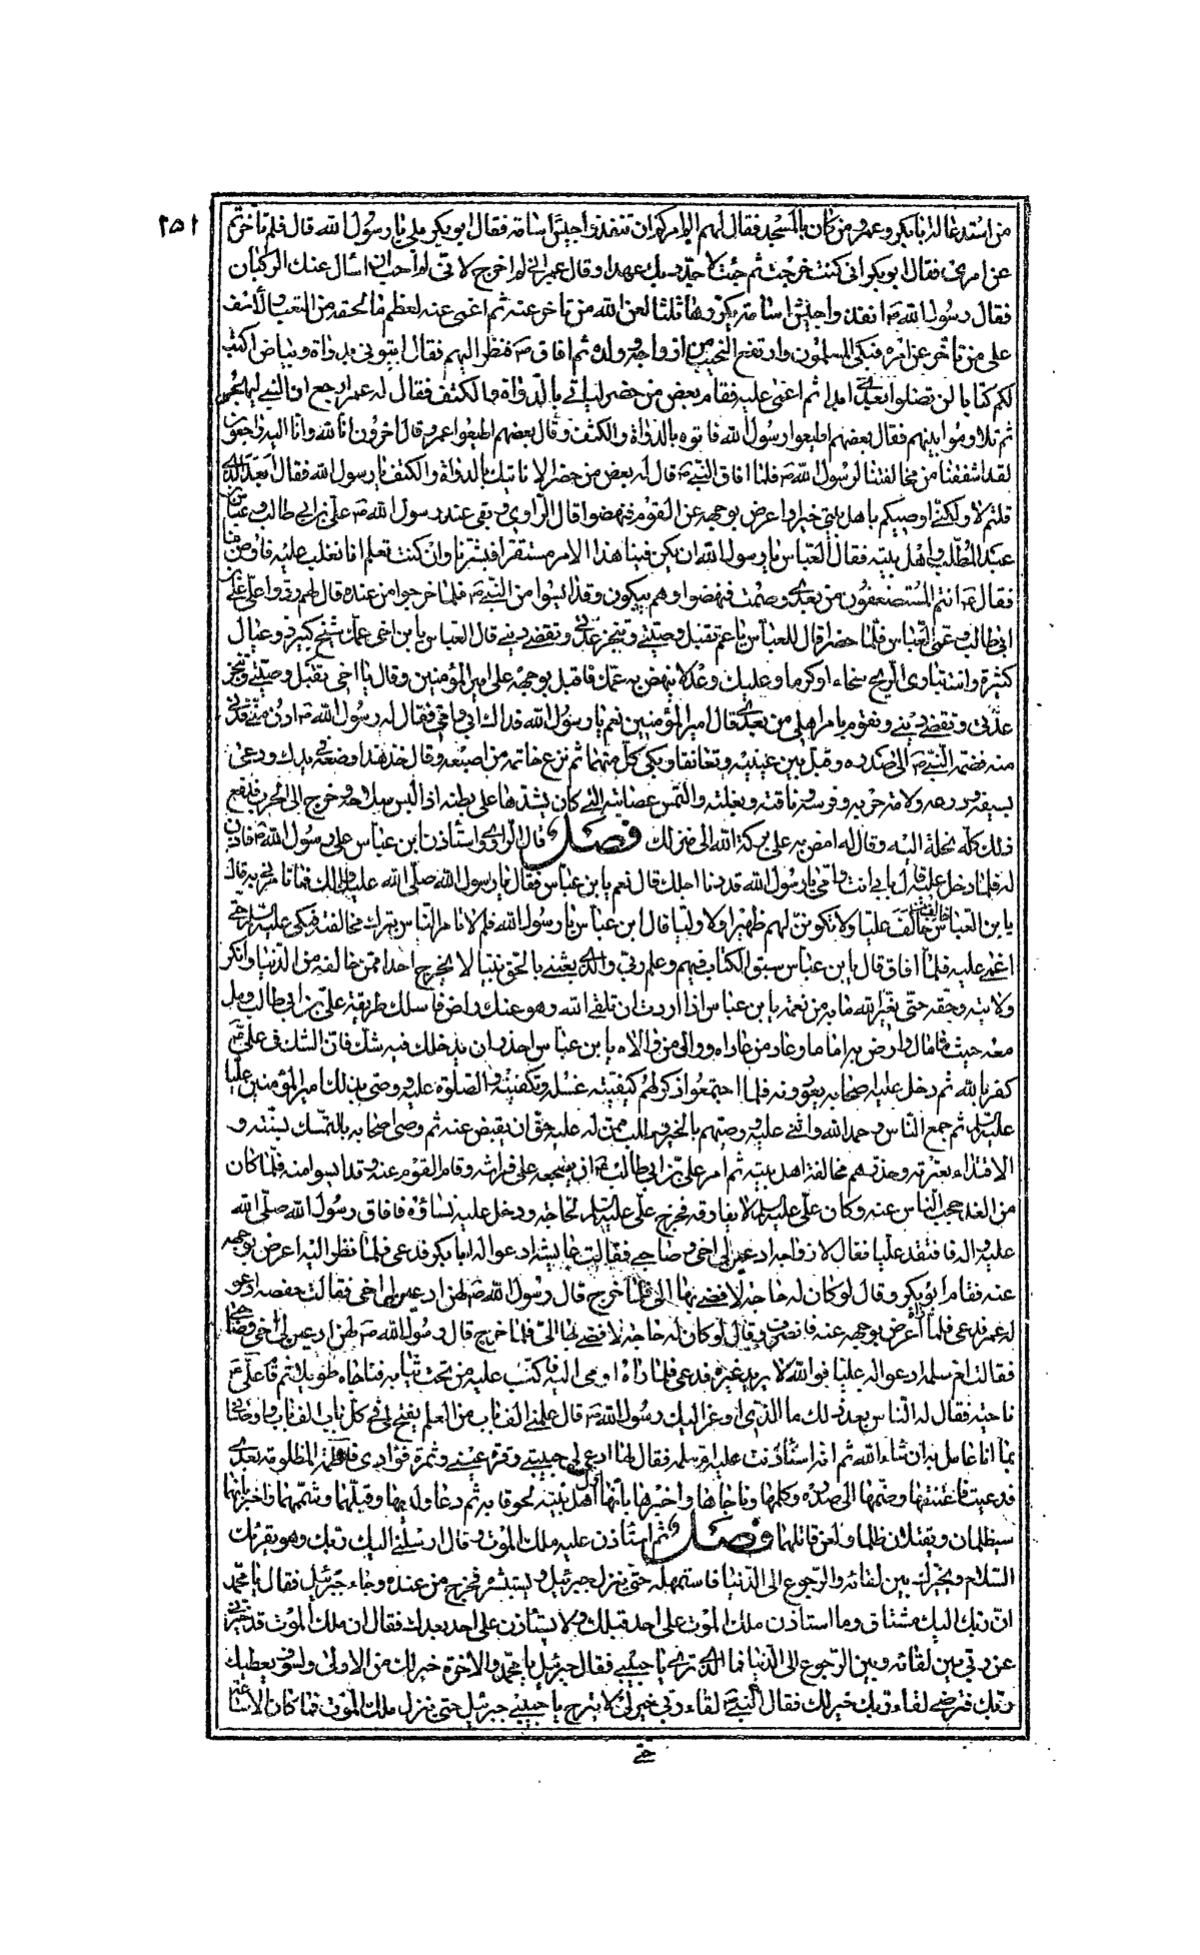 ٢٥١
من استدعا له ابا بكر وعمر ومن كان بالمسجد فقال لهم الم امركم ان تنفذوا جيش اسامة فقال ابو بكر بلى يا رسول الله قال فلم تاخرتم
عن امري فقال ابو بكر اني كنت خرجت ثم جئت لاجدد بك عهدا وقال عمر اني لم اخرج لاني لم احب ان اسال عنك الركبان
فقال رسول الله ص انفذوا جيش اسامة يكررها ثلثا لعن الله من تاخر عنه ثم اغمى عنه لعظم ما لحقه من التعب والاسف
على من تاخر عن امره فبكى المسلمون وارتفع النحيب من ازواجه وولده ثم افاق ص فنظر اليهم فقال ايتوني بدواة وبياض اكتب
لكم كتابا لن تضلوا بعدي ابدا ثم اغمى عليه فقام بعض من حضر لياتي بالدواة والكتف فقال له عمر ارجع ان النبي ليهجر
ثم تلاوموا بينهم فقال بعضهم اطيعوا رسول الله فاتوه بالدواة والكتف وقال بعضهم اطيعوا عمر وقال اخرون انا لله وانا اليه راجعون
لقد اشفقنا من مخالفتنا لرسول الله ص فلما افاق النبي ص قال له بعض من حضر الا ناتيك بالدواة والكتف يا رسول الله فقال ابعد الذي
قلتم لا ولكني اوصيكم باهل بيتي خيرا واعرض بوجهه عن القوم فنهضوا قال الراوي وبقى عند رسول الله ص علي بن ابي طالب وعباس بن
عبد المطلب واهل بيته فقال العباس يا رسول الله ان يكن فينا هذا الامر مستقرا فبشرنا وان كنت تعلم انا نغلب عليه فاوص بنا
فقال ص انتم المستضعفون من بعدي وصمت فنهضوا وهم يبكون وقد ائيسوا من النبي ص فلما خرجوا من عنده قال لهم ردوا على علي بن
ابي طالب وعمي العباس فلما حضرا قال للعباس يا عم تقبل وصيتي وتنجز عدتي وتقضي ديني قال العباس يا بن اخي عمك شيخ كبير ذو عيال
كثيرة وانت تباري الريح سخاء او كرما وعليك وعد لا ينهض به عمك فاقبل بوجهه على امير المؤمنين وقال يا اخي تقبل وصيتي وتنجز
عدتي وتقضي ديني وتقوم بامر اهلي من بعدي قال امير المؤمنين نعم يا رسول الله فداك ابي وامي فقال له رسول الله ص ادن مني فدنى
منه فضمه النبي ص الى صدره وقبل بين عينيه وتعانقا وبكى كل منهما ثم نزع خاتمه من اصبعه وقال خذ هذا وضعه في يدك ودعى
بسيفه ودرعه ولامة حربه وفرسه وناقته وبغلته والتمس عصابته التي كان يشدها على بطنه اذا لبس سلاحه وخرج الى الحرب فدفع
ذلك كله نحلة اليه وقال له امض به على بركة الله الى منزلك فصل قال الراوي واستاذن ابن عباس على رسول الله ص فاذن
له فلما دخل عليه قال بابي انت وامي يا رسول الله قد دنا اجلك قال نعم يا بن عباس فقال يا رسول الله صلى الله عليك والك فما تامرني به قال
يا بن العباس خالف من خالف عليا ولا تكونن لهم ظهيرا ولا وليا قال ابن عباس يا رسول الله فلم لا تامر الناس بترك مخالفته فبكى عليه السلم حتى
اغمى عليه فلما افاق قال يا بن عباس سبق الكتاب فيهم وعلم ربي والذي بعثني بالحق نبيا لا يخرج احدا ممن خالفه من الدنيا وانكر
ولايته وحقه حتى يغير الله ما به من نعمة يا بن عباس اذا اردت ان تلقى الله وهو عنك راض فاسلك طريقة علي بن ابي طالب ومل
معه حيث ما مال وارض به اماما وعاد من عاداه ووالي من والاه يا بن عباس احذر ان يدخلك فيه شك فان الشك في علي ع
كفر بالله ثم دخل عليه اصحابه يعودونه فلما اجتمعوا ذكر لهم كيفيته غسله وتكفينه والصلوة عليه ووصى بذلك امير المؤمنين عليا
عليه السلم ثم جمع الناس وحمد الله واثنى عليه ووصيهم بالخير وطلب ممن له عليه حق ان يقبض عنه ثم وصى اصحابه بالتمسك بسنته و
الاقتداء بعترته وحذرهم مخالفة اهل بيته ثم امر علي بن ابي طالب ع ان يضجعه على فراشه وقام القوم عنه وقد ايسوا منه فلما كان
من الغد حجب الناس عنه وكان علي عليه السلم لا يفارقه فخرج علي عليه السلم لحاجة ودخل عليه نساؤه فافاق رسول الله صلى الله
عليه واله فافتقد عليا فقال لازواجه ادعين لي اخي وصاحبي فقالت عايشة ادعوا له ابا بكر فدعى فلما نظر اليه اعرض بوجهه
عنه فقام ابو بكر وقال لو كان له حاجة لافضى بها الي فلما خرج قال رسول الله ص لهن ادعين لي اخي فقالت حفصه ادعو
له عمر فدعى فلما راه اعرض بوجهه عنه فانصرف وقال لو كان له حاجة لافضى لها الي فلما خرج قال رسول الله ص لهن ادعين لي اخي وصاحبي
فقالت ام سلمه ادعوا له عليا فوالله لا يريد غيره فدعى فلما راه اومى اليه فاكتب عليه من تحت ثيابه فناجاه طويلا ثم قام علي ع
ناحية فقال له الناس بعد ذلك ما الذي اوعز اليك رسول الله ص قال علمني الف باب من العلم يفتح لي في كل باب الف باب واوصاني
بما انا عامل به ان شاء الله ثم انه استاذنت عليه ام سلمه فقال لها ادعي لي حبيبتي وقرة عيني وثمرة فؤادي فاطمة المظلومة بعدي
فدعيت فاعتنقها وضمها الى صدره وكلمها وناجاها واخبرها بانها اول اهل بيته لحوقا به ثم دعا ولديها وقبلهما وشمهما واخبر بانهما
سيظلمان ويقتلان ظلما ولعن قاتلهما فصل ثم استاذن عليه ملك الموت وقال ارسلني اليك ربك وهو يقرئك
السلام ويخيرك بين لقائه والرجوع الى الدنيا فاستمهله حتى ينزل جبرئيل ويستشره فخرج من عنده وجاء جبرئيل فقال يا محمد
ان ربك اليك مشتاق وما استاذن ملك الموت على احد قبلك ولا يستاذن على احد بعدك فقال ان ملك الموت قد خيرني
عن ربي بين لقائه وبين الرجوع الى الدنيا فما الذي ترى يا حبيبي فقال جبرئيل يا محمد والاخرة خير لك من الاولى ولسوف يعطيك
ربك فترضى لقاء ربك خير لك فقال النبي ص لقاء ربي خير لي لا تبرح يا حبيبي جبرئيل حتى ينزل ملك الموت فما كان الا ساعة
حتى